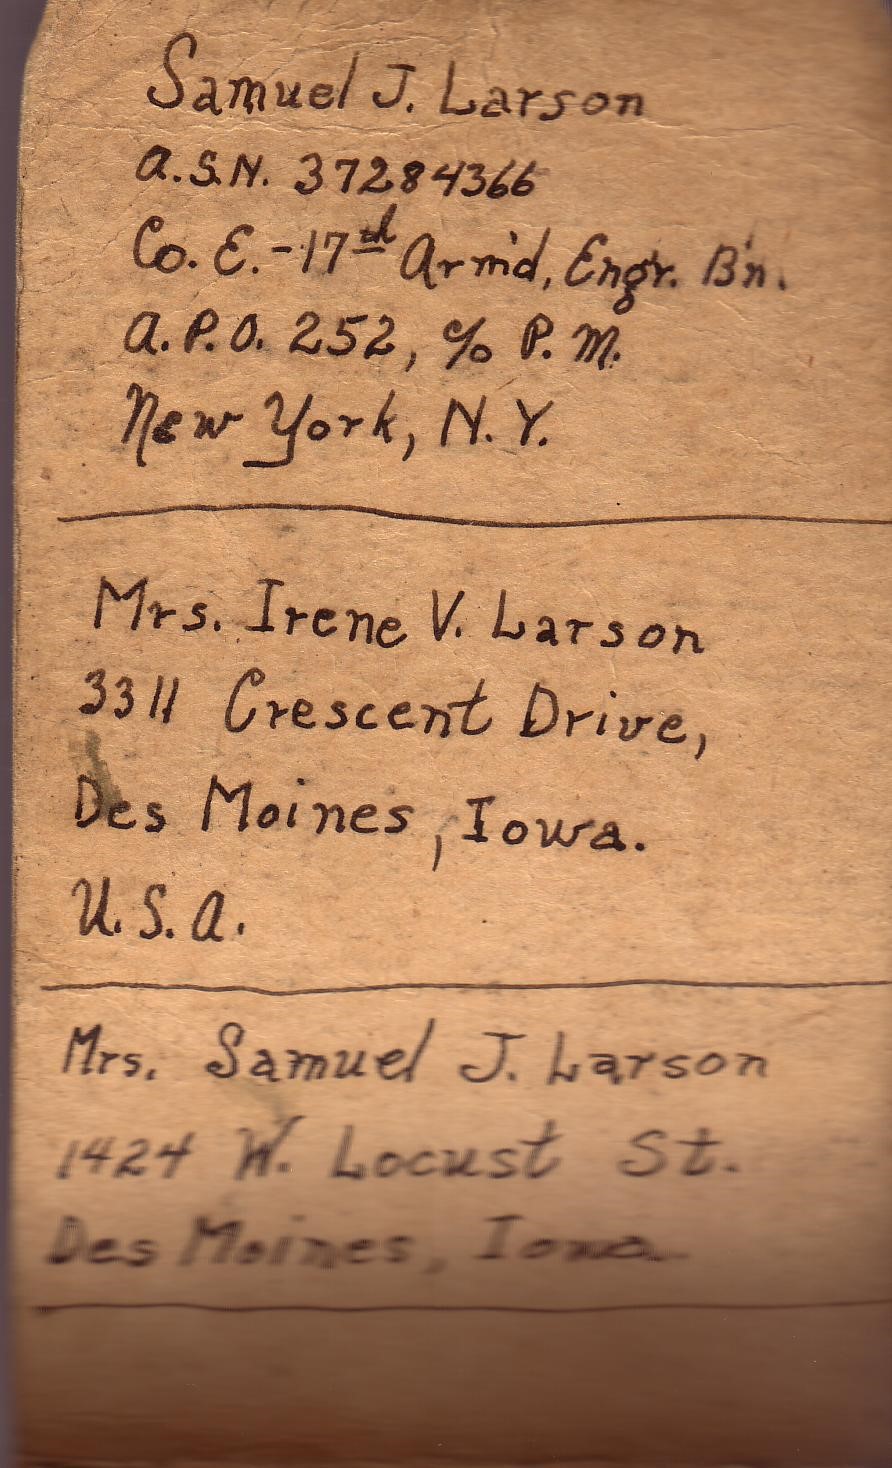 Samuel J. Larson
A.S.N. 37284366
Co. E.-17th Arm'd, Engr. B'n.
A.P.O. 252, c/o P.M.
New York, N.Y.
Mrs. Irene V. Larson
3311 Crescent Drive,
Des Moines, Iowa.
U.S.A.
Mrs. Samuel J. Larson
1424 W. Locust St.
Des Moines, Iowa